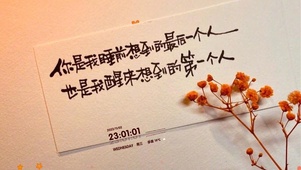 你是我睡前想到的最后一个人
也是我醒来想到的第一个人
23:01:01
WEDNESDAY 周三